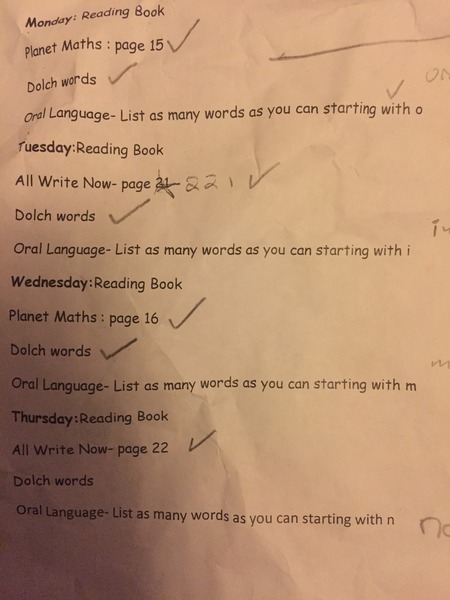 Monday: Reading Book
Planet Maths : page 15
Dolch words
Oral Language- List as many words as you can starting with o
Tuesday:Reading Book
All Write Now- page 21 22
Dolch words
Oral Language- List as many words as you can starting with i
Wednesday:Reading Book
Planet Maths : page 16
Dolch words
Oral Language- List as many words as you can starting with m
Thursday:Reading Book
All Write Now- page 22
Dolch words
Oral Language- List as many words as you can starting with n